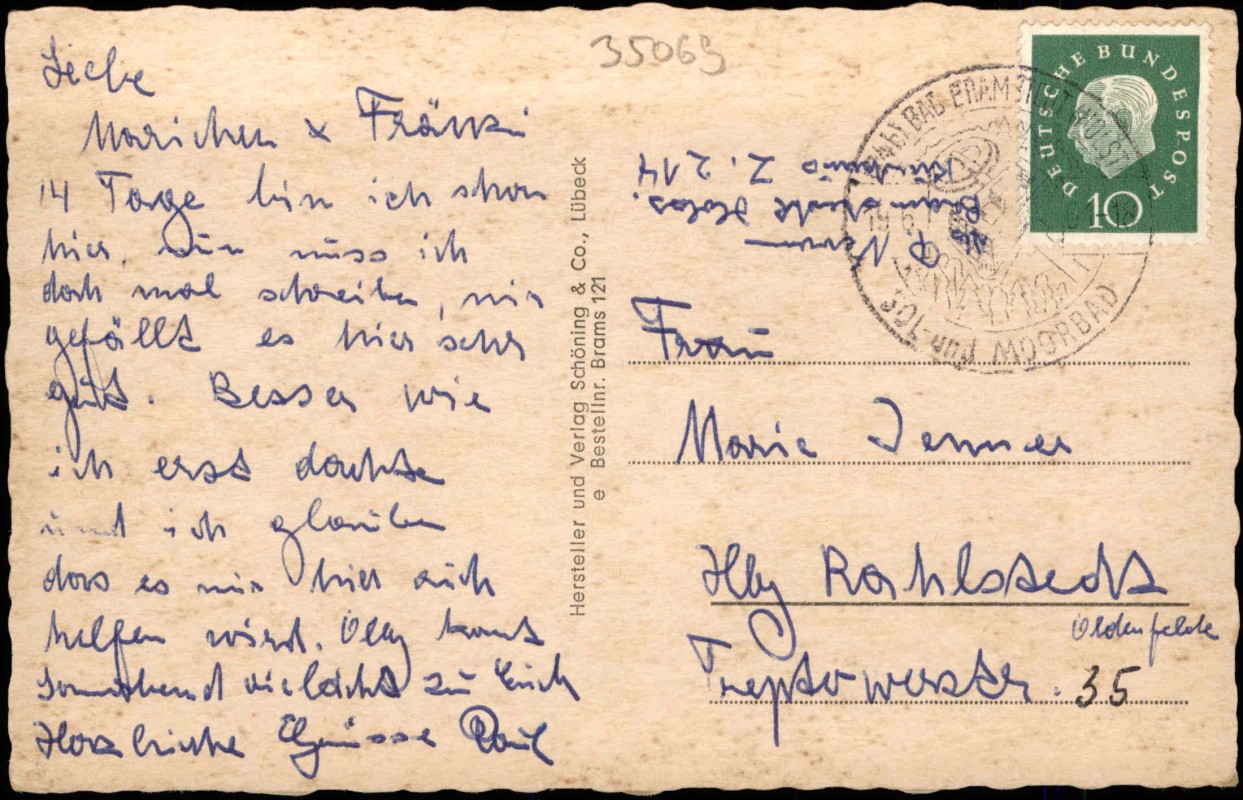 35069
Liebe
Mariechen & Fränki
14 Tage bin ich schon
hier. nun muss ich
doch mal schreiben, mir
gefällt es hier sehr
gut. Besser wie
ich erst dachte
und ich glaube
dass es mir hier auch
helfen wird. Olly kommt
Sonnabend vielleicht zu Euch
Herzliche Grüsse Paul
Hersteller und Verlag Schöning & Co., Lübeck
e Bestellnr. Brams 121
DEUTSCHE BUNDESPOST
10
BAD BRAMSTEDT HOLST
MOORBAD
Bramstedt Holst.
Kurhaus Z. 214
Frau
Marie Jenner
Hbg Rahlstedt
Oldenfelde
Treptowerstr. 35